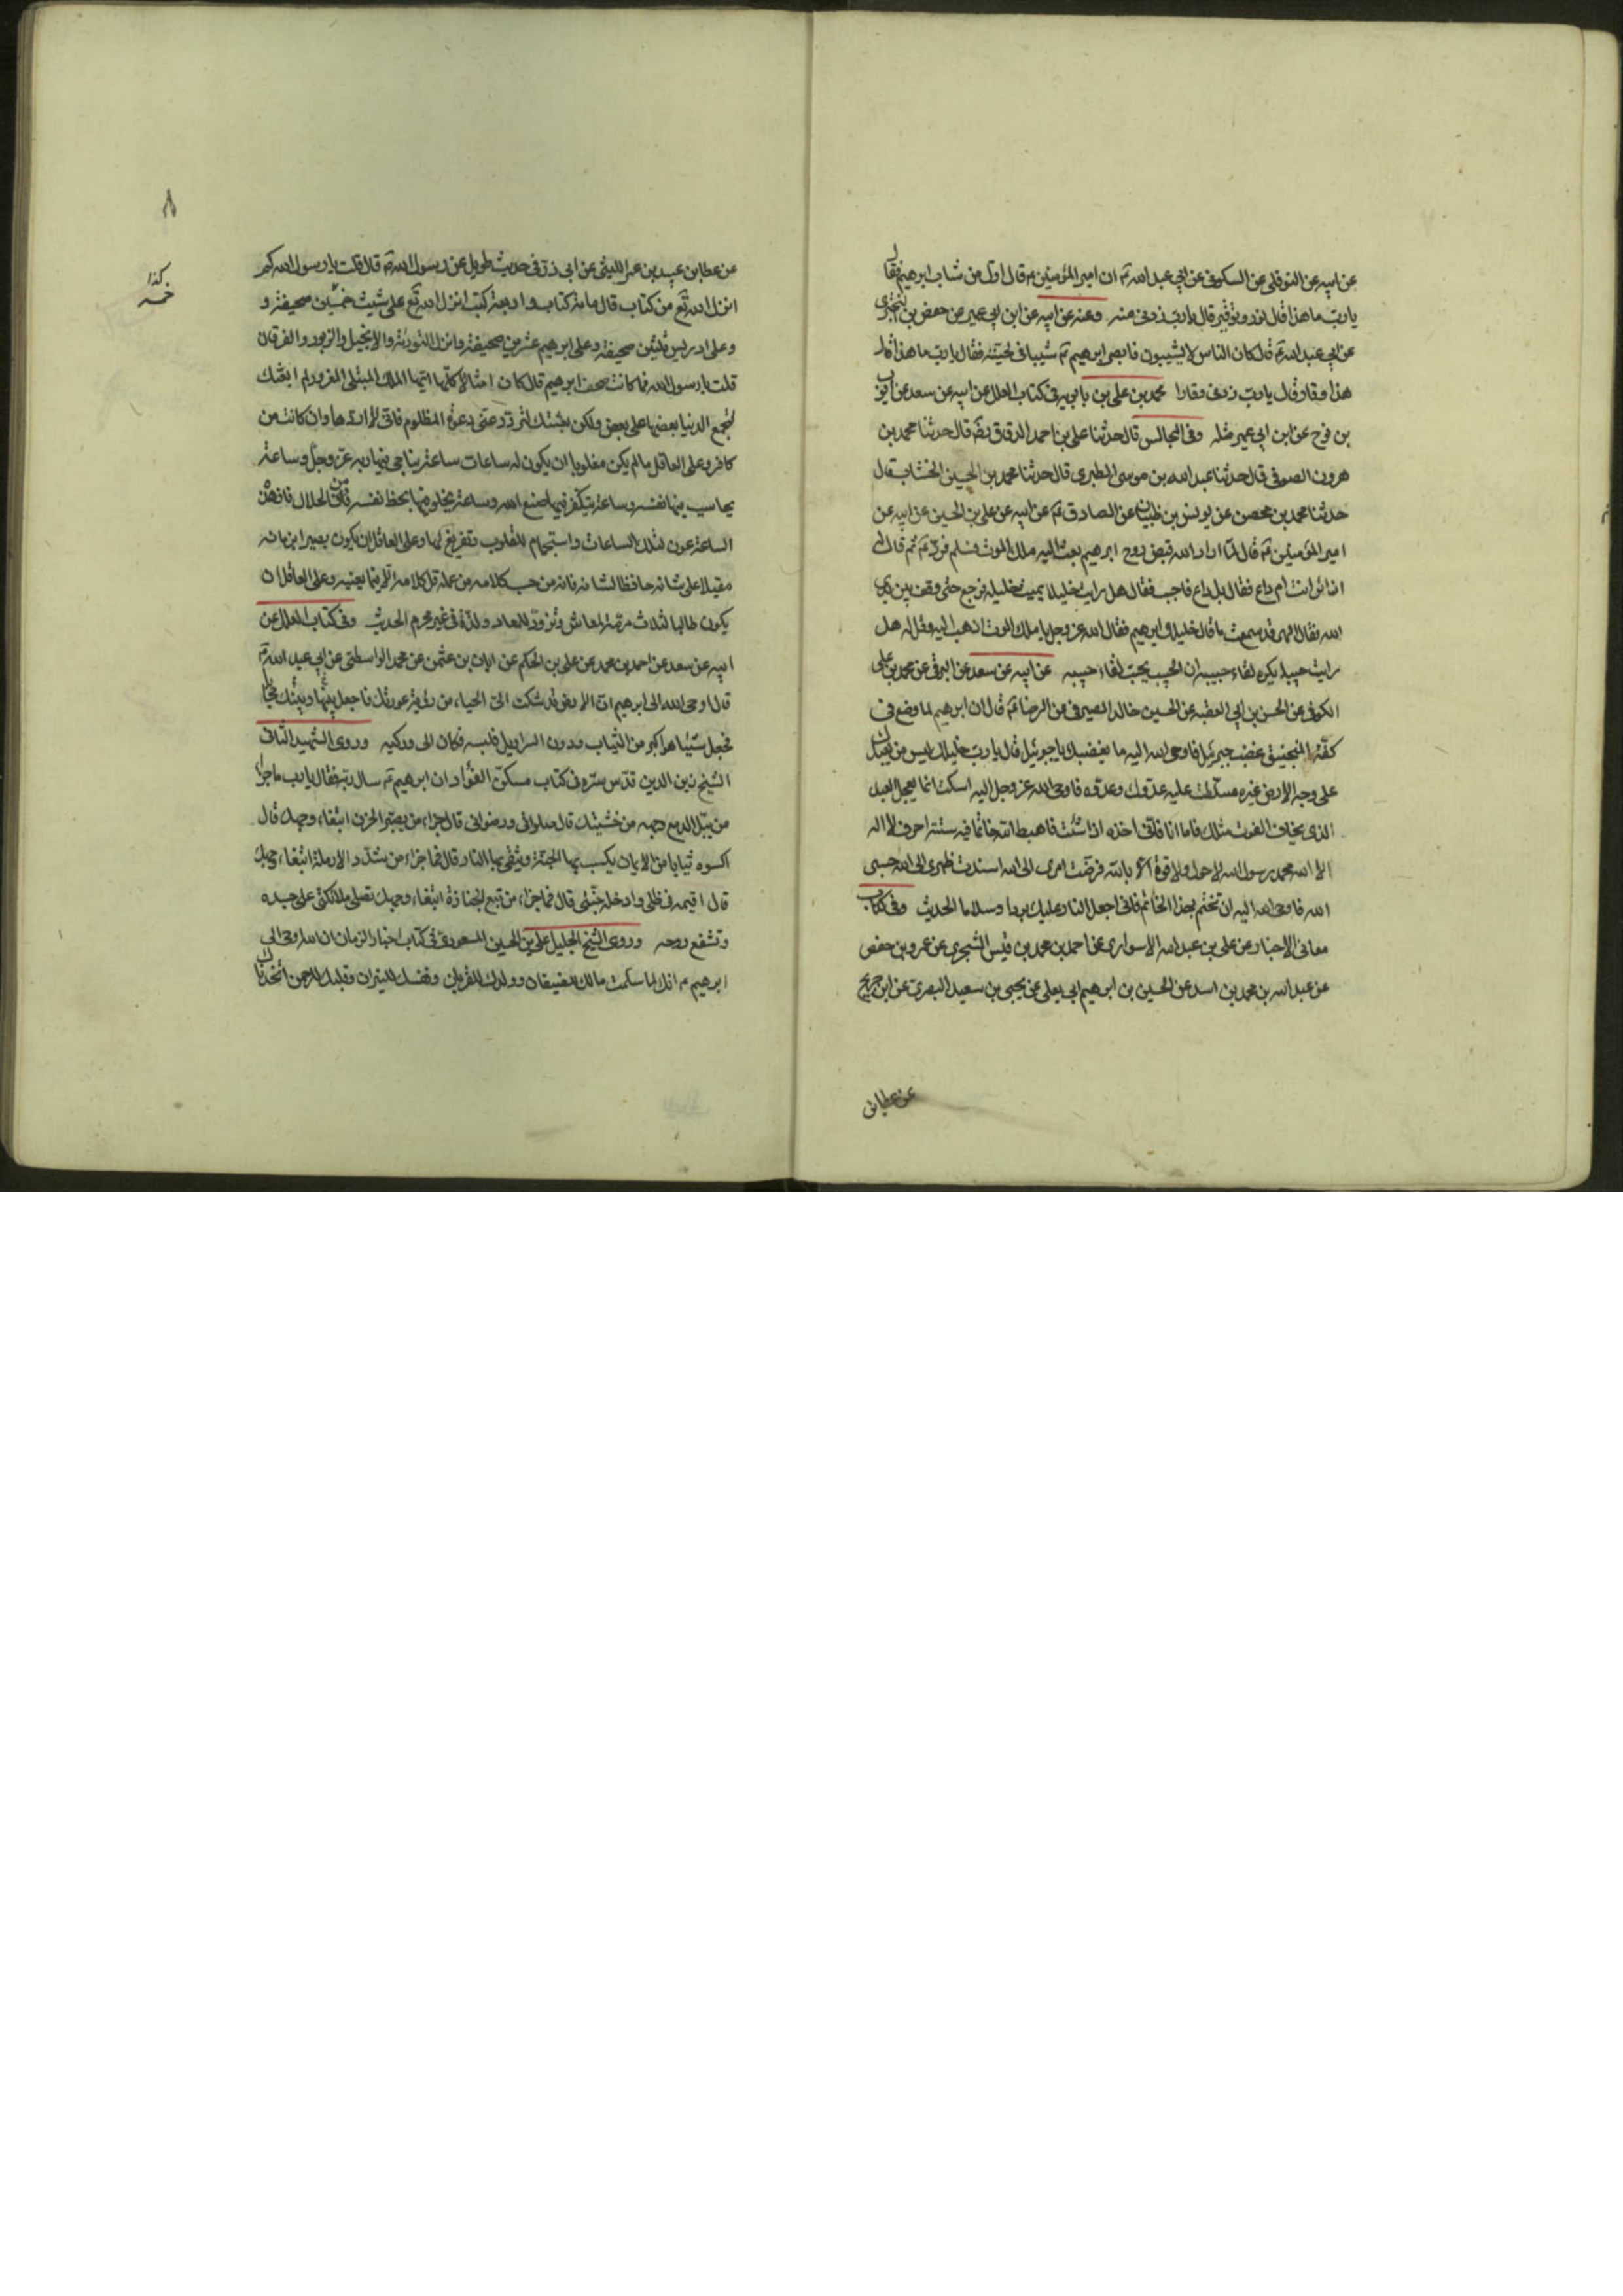 عن ابيه عن النوفلي عن السكوني عن ابي عبد الله ع ان امير المؤمنين ع قال اول من شاب ابرهيم فقال
يا رب ما هذا قال نور و توقير قال يا رب زدنى منه وعنه عن ابيه عن ابن ابي عمير عن حفص بن البختري
عن ابي عبد الله ع قال كان الناس لا يشيبون فابصر ابرهيم ع شيبا في لحيته فقال يا رب ما هذا قال
هذا وقار قال يا رب زدنى وقارا محمد بن علي بن بابويه في كتاب العلل عن ابيه عن سعد عن ايوب
بن نوح عن ابن ابي عمير مثله وفى المجالس قال حدثنا علي بن احمد الدقاق رضه قال حدثنا محمد بن
هرون الصوفى قال حدثنا عبد الله بن موسى الطبرى قال حدثنا محمد بن الحسين الخشاب قال
حدثنا محمد بن محصن عن يونس بن ظبيان عن الصادق ع عن ابيه عن علي بن الحسين عن ابيه عن
امير المؤمنين ع قال لما اراد الله قبض روح ابرهيم بعث اليه ملك الموت فسلم فرد ع ثم قال له
ازائر انت ام داع فقال بل داع فاجب فقال هل رايت خليلا يميت خليله فرجع حتى وقف بين يدي
الله فقال الهى قد سمعت ما قال خليلك ابرهيم فقال الله عز وجل يا ملك الموت اذهب اليه وقل له هل
رايت حبيبا يكره لقاء حبيبه ان الحبيب يحب لقاء حبيبه عن ابيه عن سعد عن البرقى عن محمد بن علي
الكوفى عن الحسن بن ابي العقبه عن الحسين خالد الصيرفى عن الرضا ع قال ان ابرهيم لما وضع فى
كفة المنجنيق غضب جبرئيل فاوحى الله اليه ما يغضبك يا جبرئيل قال يا رب خليلك ليس من يعبدك
على وجه الارض غيره سلطت عليه عدوك وعدوه فاوحى الله عز وجل اليه اسكت انما يعجل العبد
الذى يخاف الفوت مثلك فاما انا فانى اخذه اذا شئت فاهبط الله خاتما فيه ستة احرف لا اله
الا الله محمد رسول الله لا حول ولا قوة الا بالله فوضت امرى الى الله اسندت ظهرى الى الله حسبى
الله فاوحى الله اليه ان تختم بهذا الخاتم فانى اجعل النار عليك بردا وسلاما الحديث وفى كتاب
معانى الاخبار عن على بن عبد الله الاسوارى عن احمد بن محمد بن قيس الشجرى عن عمرو بن حفص
عن عبد الله بن محمد بن اسد عن الحسين بن ابرهيم ابى يعلى عن يحيى بن سعيد البصرى عن ابن جريج
عن عطا بن
٨
عن عطا بن عبيد بن عمير الليثى عن ابى ذر فى حديث طويل عن رسول الله ص قال قلت يا رسول الله كم
انزل الله تع من كتاب قال مائة كتاب واربعة كتب انزل الله تع على شيث خمسين صحيفة و
كذا
خمسة
وعلى ادريس ثلثين صحيفة وعلى ابرهيم عشرين صحيفة وانزل التورية والانجيل والزبور والفرقان
قلت يا رسول الله فما كانت صحف ابرهيم قال كان امثالا كلها ايها الملك المبتلى المغرور لم ابعثك
لتجمع الدنيا بعضها على بعض ولكن بعثتك لترد عنى دعوة المظلوم فانى لا اردها وان كانت من
كافر وعلى العاقل ما لم يكن مغلوبا ان يكون له ساعات ساعة يناجى فيها ربه عز وجل وساعة
يحاسب فيها نفسه وساعة يتفكر فيما صنع الله وساعة يخلو فيها بحظ نفسه من الحلال فان هذه
الساعة عون لتلك الساعات واستجمام للقلوب وتفريغ لها وعلى العاقل ان يكون بصيرا بزمانه
مقبلا على شانه حافظا لسانه فانه من حسب كلامه من عمله قل كلامه الا فيما يعنيه وعلى العاقل ان
يكون طالبا لثلاث مرمة لمعاش وتزود لمعاد ولذة فى غير محرم الحديث وفى كتاب العلل عن
ابيه عن سعد عن احمد بن محمد عن على بن الحكم عن ابان بن عثمن عن محمد الواسطى عن ابى عبد الله ع
قال اوحى الله الى ابرهيم ان الارض قد شكت الى الحياء من رؤية عورتك فاجعل بينها وبينك حجابا
فجعل شيئا هو اكبر من الثياب ودون السراويل فلبسه فكان الى وركيه وروى الشهيد الثانى
الشيخ زين الدين قدس سره فى كتاب مسكن الفؤاد ان ابرهيم ع سال ربه فقال يا رب ما جزاء
من يبل الدمع وجهه من خشيتك قال صلواتى ورضوانى قال فما جزاء من يصبر الحزن ابتغاء وجهك قال
اكسوه ثيابا من الايمان يكسب بها الجنة ويتقى بها النار قال فما جزاء من سدد الارملة ابتغاء وجهك
قال اقيمه فى ظلى وادخله جنتى قال فما جزاء من تبع الجنازة ابتغاء وجهك قال تصلى ملائكتى على جسده
وتشفع روحه وروى الشيخ الجليل على بن الحسين المسعودى فى كتاب اخبار الزمان ان الله اوحى الى
ابرهيم ع انك لما سلمت مالك للضيفان وولدك للقربان ونفسك للنيران وقلبك للرحمن اتخذناك